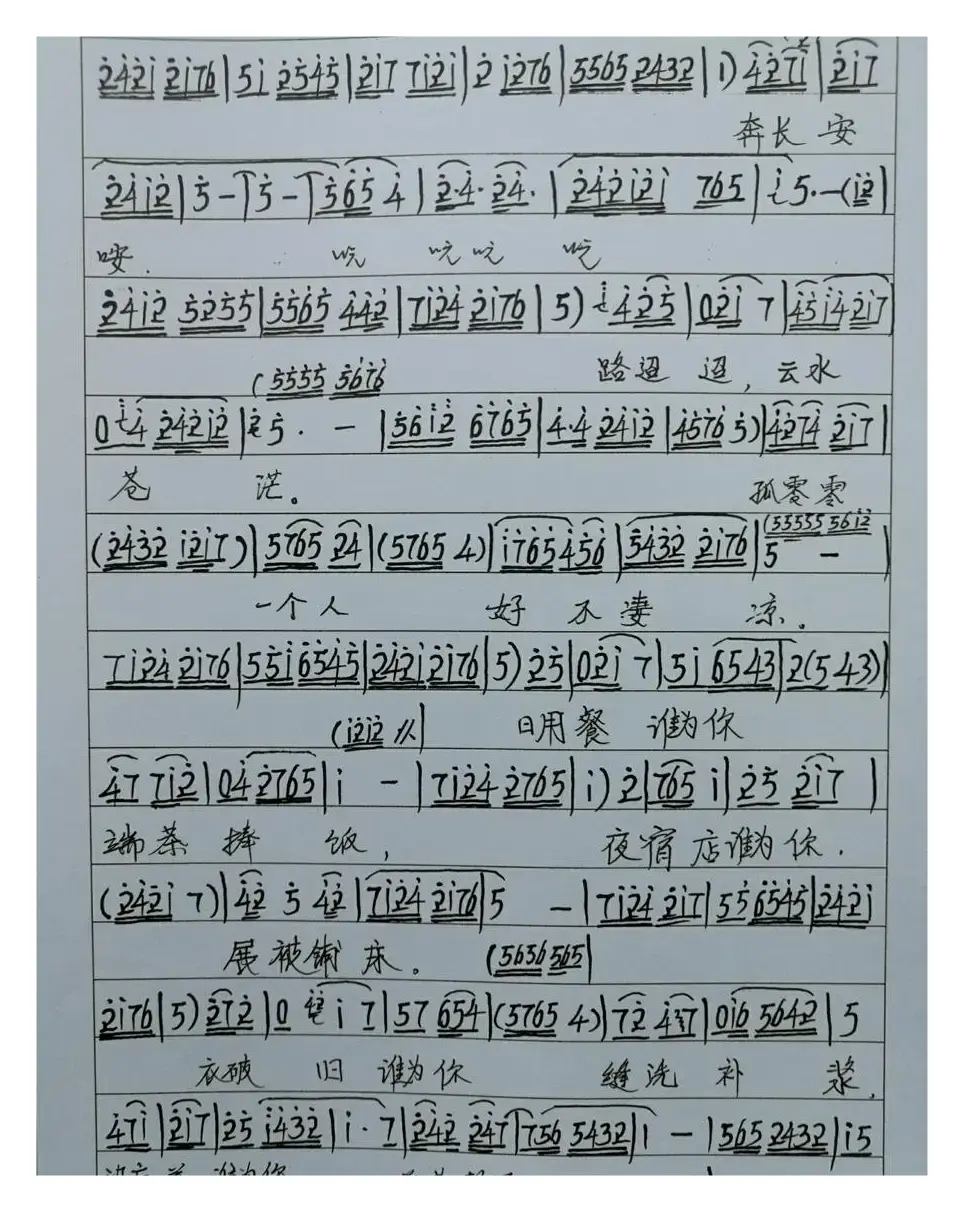 2421 2176|51 2545|217 7121|2 1276|5565 2432|1) 4271|217
奔长安
2412|5-|5-|565 4|2·4· 24·|242121 765|1 5·-(12|
咹. 吭 吭吭 吭
2412 5255|5565 442|7124 2176|5) 1 425|021 7|4514217
(5555 5676 路迢迢，云水
0 1 4 24212|2 5· -|5612 6765|4·4 2412|45765)|4274 217|
苍茫。 孤零零
(55555 5612
(2432 1217)|5765 24|(5765 4)|1765456|5432 2176|5 -|
一个人 好不凄凉。
7124 2176|551 6545|2421 2176|5) 25|021 7|51 6543|2(5 43)|
(1212 〃| 日用餐 谁为你
47 712|04 2765|1 -|7124 2765|1) 2|765 1|25 217|
端茶捧饭， 夜宿店谁为你.
(2421 7)|42 5 42|7124 2176|5 -|7124 217|55 6545|2421
展被铺床。 (5656 565|
2176|5) 272|0 42 1 7|57 654|(5765 4)|72 437|016 5642|5
衣破旧谁为你 缝洗补浆，
471|217|25 1432|1·7|242 247|756 5432|1 -|565 2432|15
谁为你